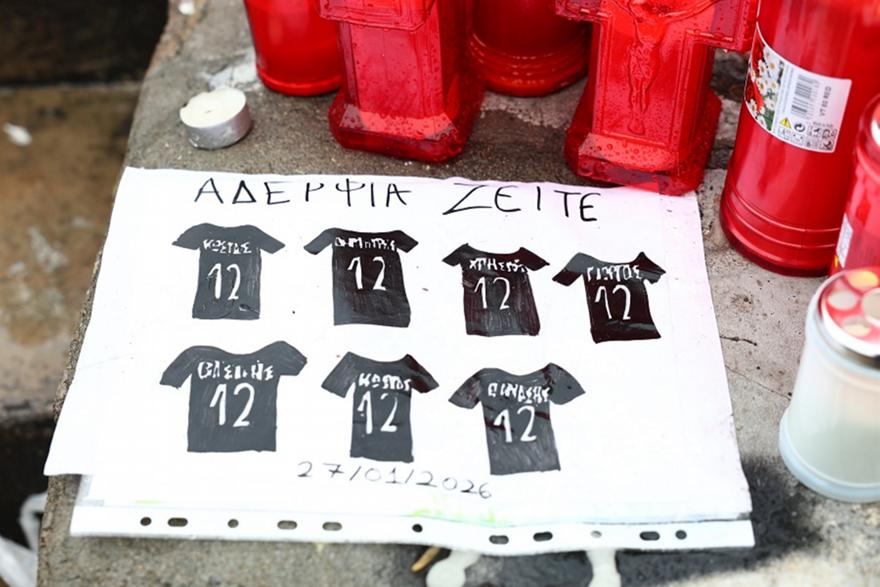 ΑΔΕΡΦΙΑ ΖΕΙΤΕ
ΚΩΣΤΑΣ ΔΗΜΗΤΡΗΣ ΧΡΗΣΤΟΣ
12 12 12 12
ΒΑΣΙΛΗΣ
12 12 12
27/01/2026